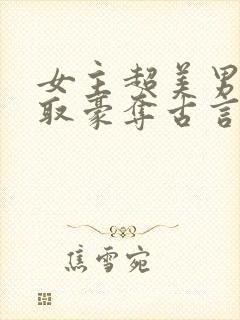 女主超美男
取豪夺古言
焦雪宛